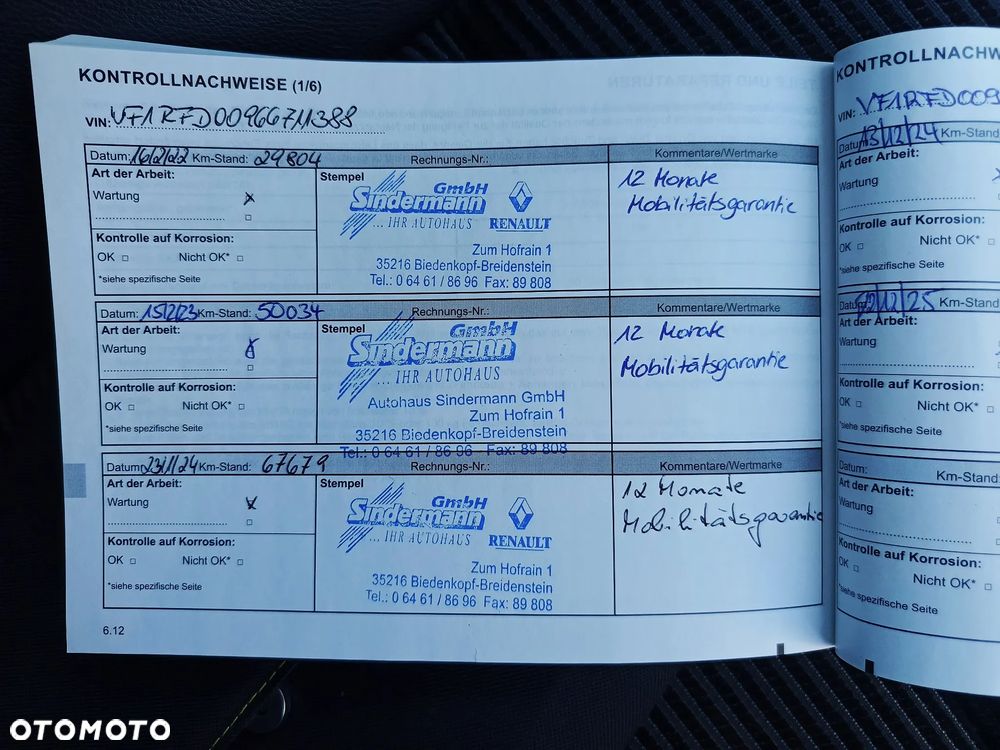 KONTROLLNACHWEISE (1/6)
VIN: VF1RFD00966711388
Datum: 16/2/22 Km-Stand: 29804 Rechnungs-Nr.: Kommentare/Wertmarke
Art der Arbeit: Stempel
Wartung x
GmbH
Sindermann
... IHR AUTOHAUS RENAULT
Zum Hofrain 1
35216 Biedenkopf-Breidenstein
Tel.: 0 64 61 / 86 96 Fax: 89 808
12 Monate
Mobilitätsgarantie
Kontrolle auf Korrosion:
OK □ Nicht OK* □
*siehe spezifische Seite
Datum: 15/2/23 Km-Stand: 50034 Rechnungs-Nr.: Kommentare/Wertmarke
Art der Arbeit: Stempel
Wartung
GmbH
Sindermann
... IHR AUTOHAUS
Autohaus Sindermann GmbH
Zum Hofrain 1
35216 Biedenkopf-Breidenstein
Tel.: 0 64 61 / 86 96 Fax: 89 808
12 Monate
Mobilitätsgarantie
Kontrolle auf Korrosion:
OK □ Nicht OK* □
*siehe spezifische Seite
Datum: 23/1/24 Km-Stand: 67679 Rechnungs-Nr.: Kommentare/Wertmarke
Art der Arbeit: Stempel
Wartung x
GmbH
Sindermann
... IHR AUTOHAUS RENAULT
Zum Hofrain 1
35216 Biedenkopf-Breidenstein
Tel.: 0 64 61 / 86 96 Fax: 89 808
12 Monate
Mobilitätsgarantie
Kontrolle auf Korrosion:
OK □ Nicht OK* □
*siehe spezifische Seite
6.12
KONTROLLNACHW
VIN: VF1RFD009
Datum: 13/12/24 Km-Stand:
Art der Arbeit:
Wartung
Kontrolle auf Korrosion:
OK □ Nicht OK* □
*siehe spezifische Seite
Datum: /12/25 Km-Stand:
Art der Arbeit:
Wartung
Kontrolle auf Korrosion:
OK □ Nicht OK* □
*siehe spezifische Seite
Datum: Km-Stand:
Art der Arbeit:
Wartung
Kontrolle auf Korrosion:
OK □ Nicht OK* □
*siehe spezifische Seite
OTOMOTO